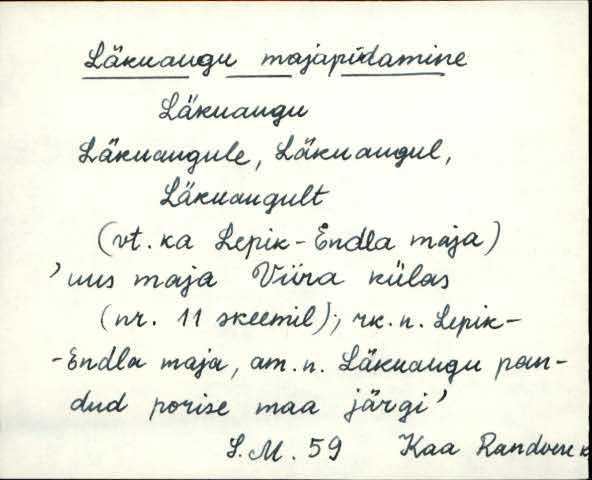 Läkuaugu majapidamine
Läkuaugu
Läkuaugule, Läkuaugul,
Läkuaugult
(vt. ka Lepik-Endla maja)
'uus maja Viira külas
(nr. 11 skeemil); rk. n. Lepik-
-Endla maja, am. n. Läkuaugu pan-
dud porise maa järgi'
S. M. 59 Kaa